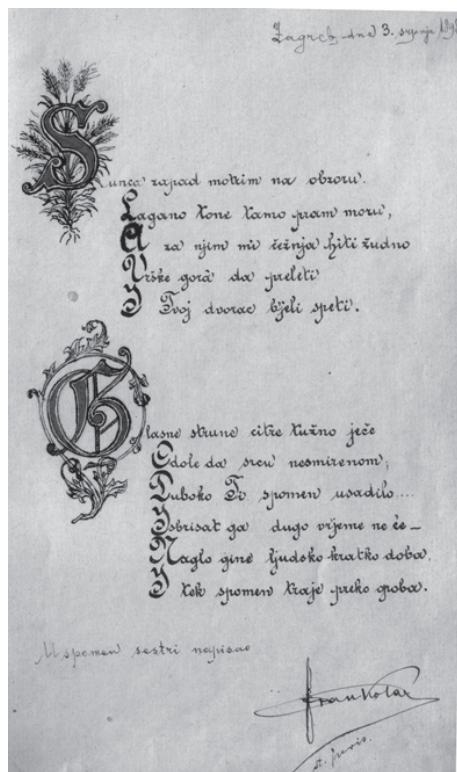 Zagreb, dne 3. srpnja
Sunca zapad motrim na obzoru.
Lagano tone tamo pram moru,
A za njim mi čežnja hiti žudno
Vrške gorâ da preleti
I Tvoj dvorac bijeli speti.
Glasne strune citre tužno ječe
Odole da srcu nesmirenom;
Duboko Ti spomen usadilo....
Isbrisat ga dugo vrijeme ne će –
Naglo gine ljudsko kratko doba.
I tek spomen traje preko groba.
U spomen sestri napisao
Fran Kolar
st. juris.